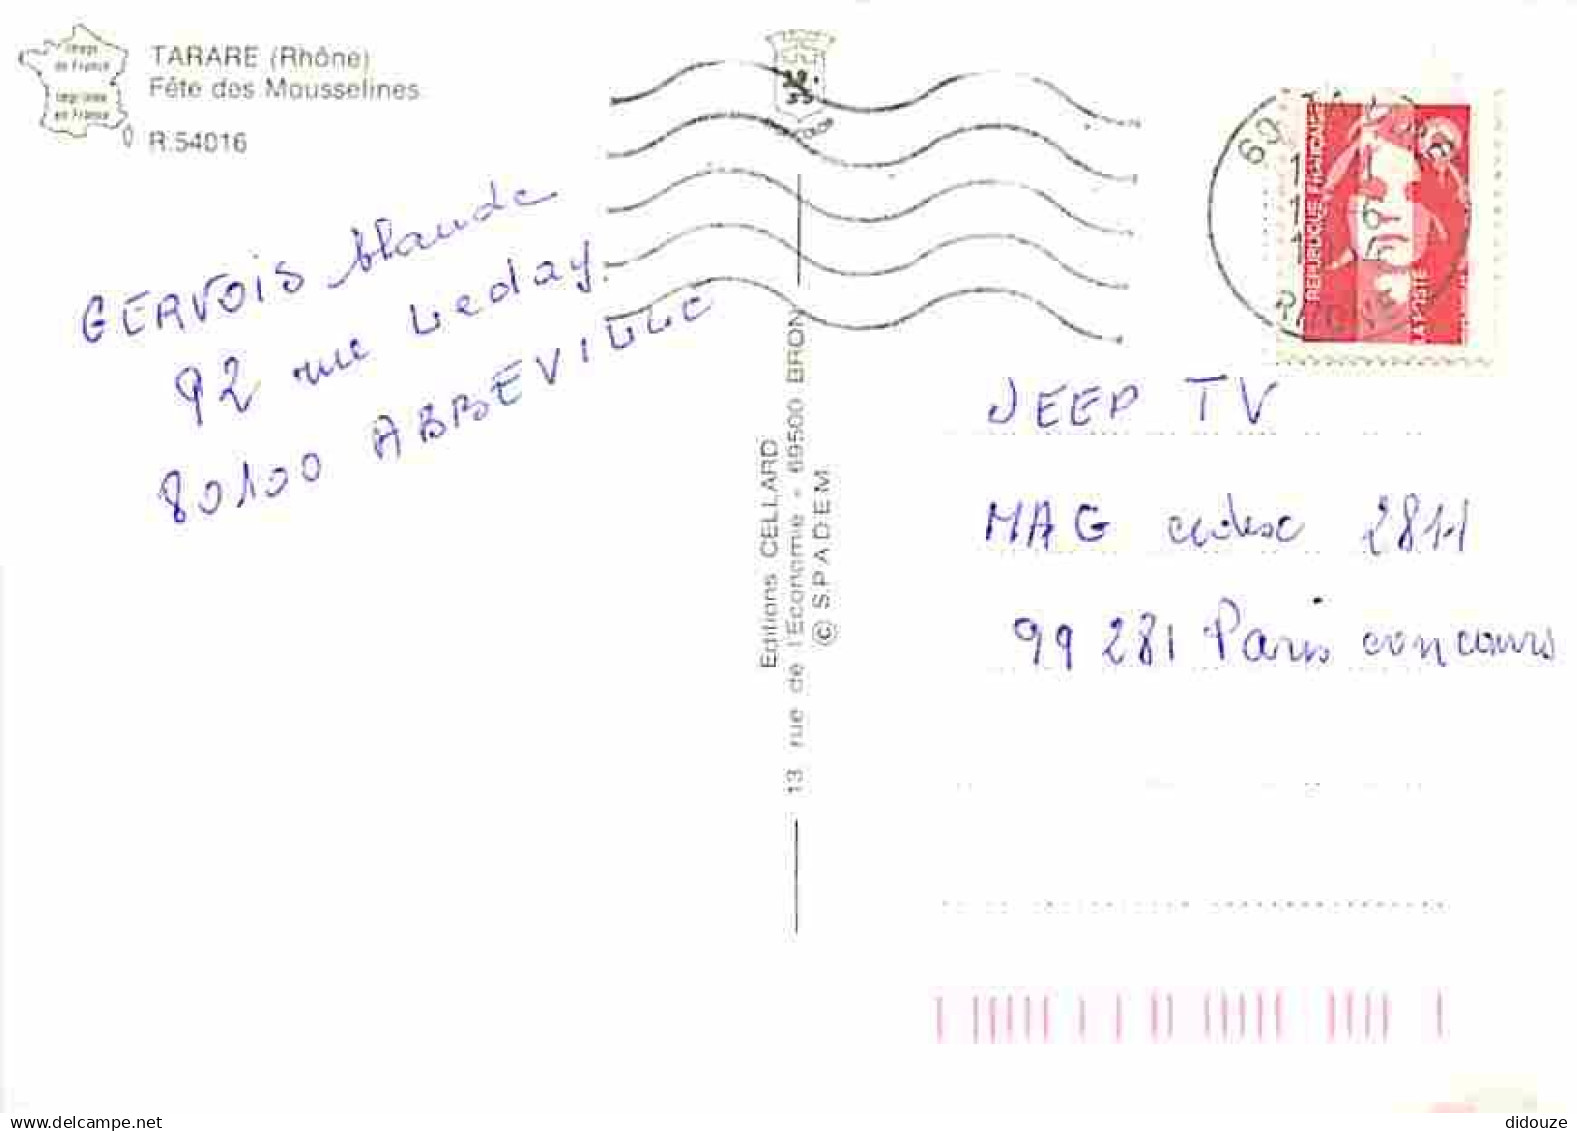 Image
de France
Imprimée
en France
TARARE (Rhône)
Fête des Mousselines
R.54016
GERVOIS Claude
92 rue Leday.
80100 ABBEVILLE
Editions CELLARD
13 rue de l'Economie - 69500 BRON
© S.P.A.D.E.M.
REPUBLIQUE FRANCAISE
LA POSTE
RHONE
JEEP TV
MAG cedex 2811
99 281 Paris concours
didouze